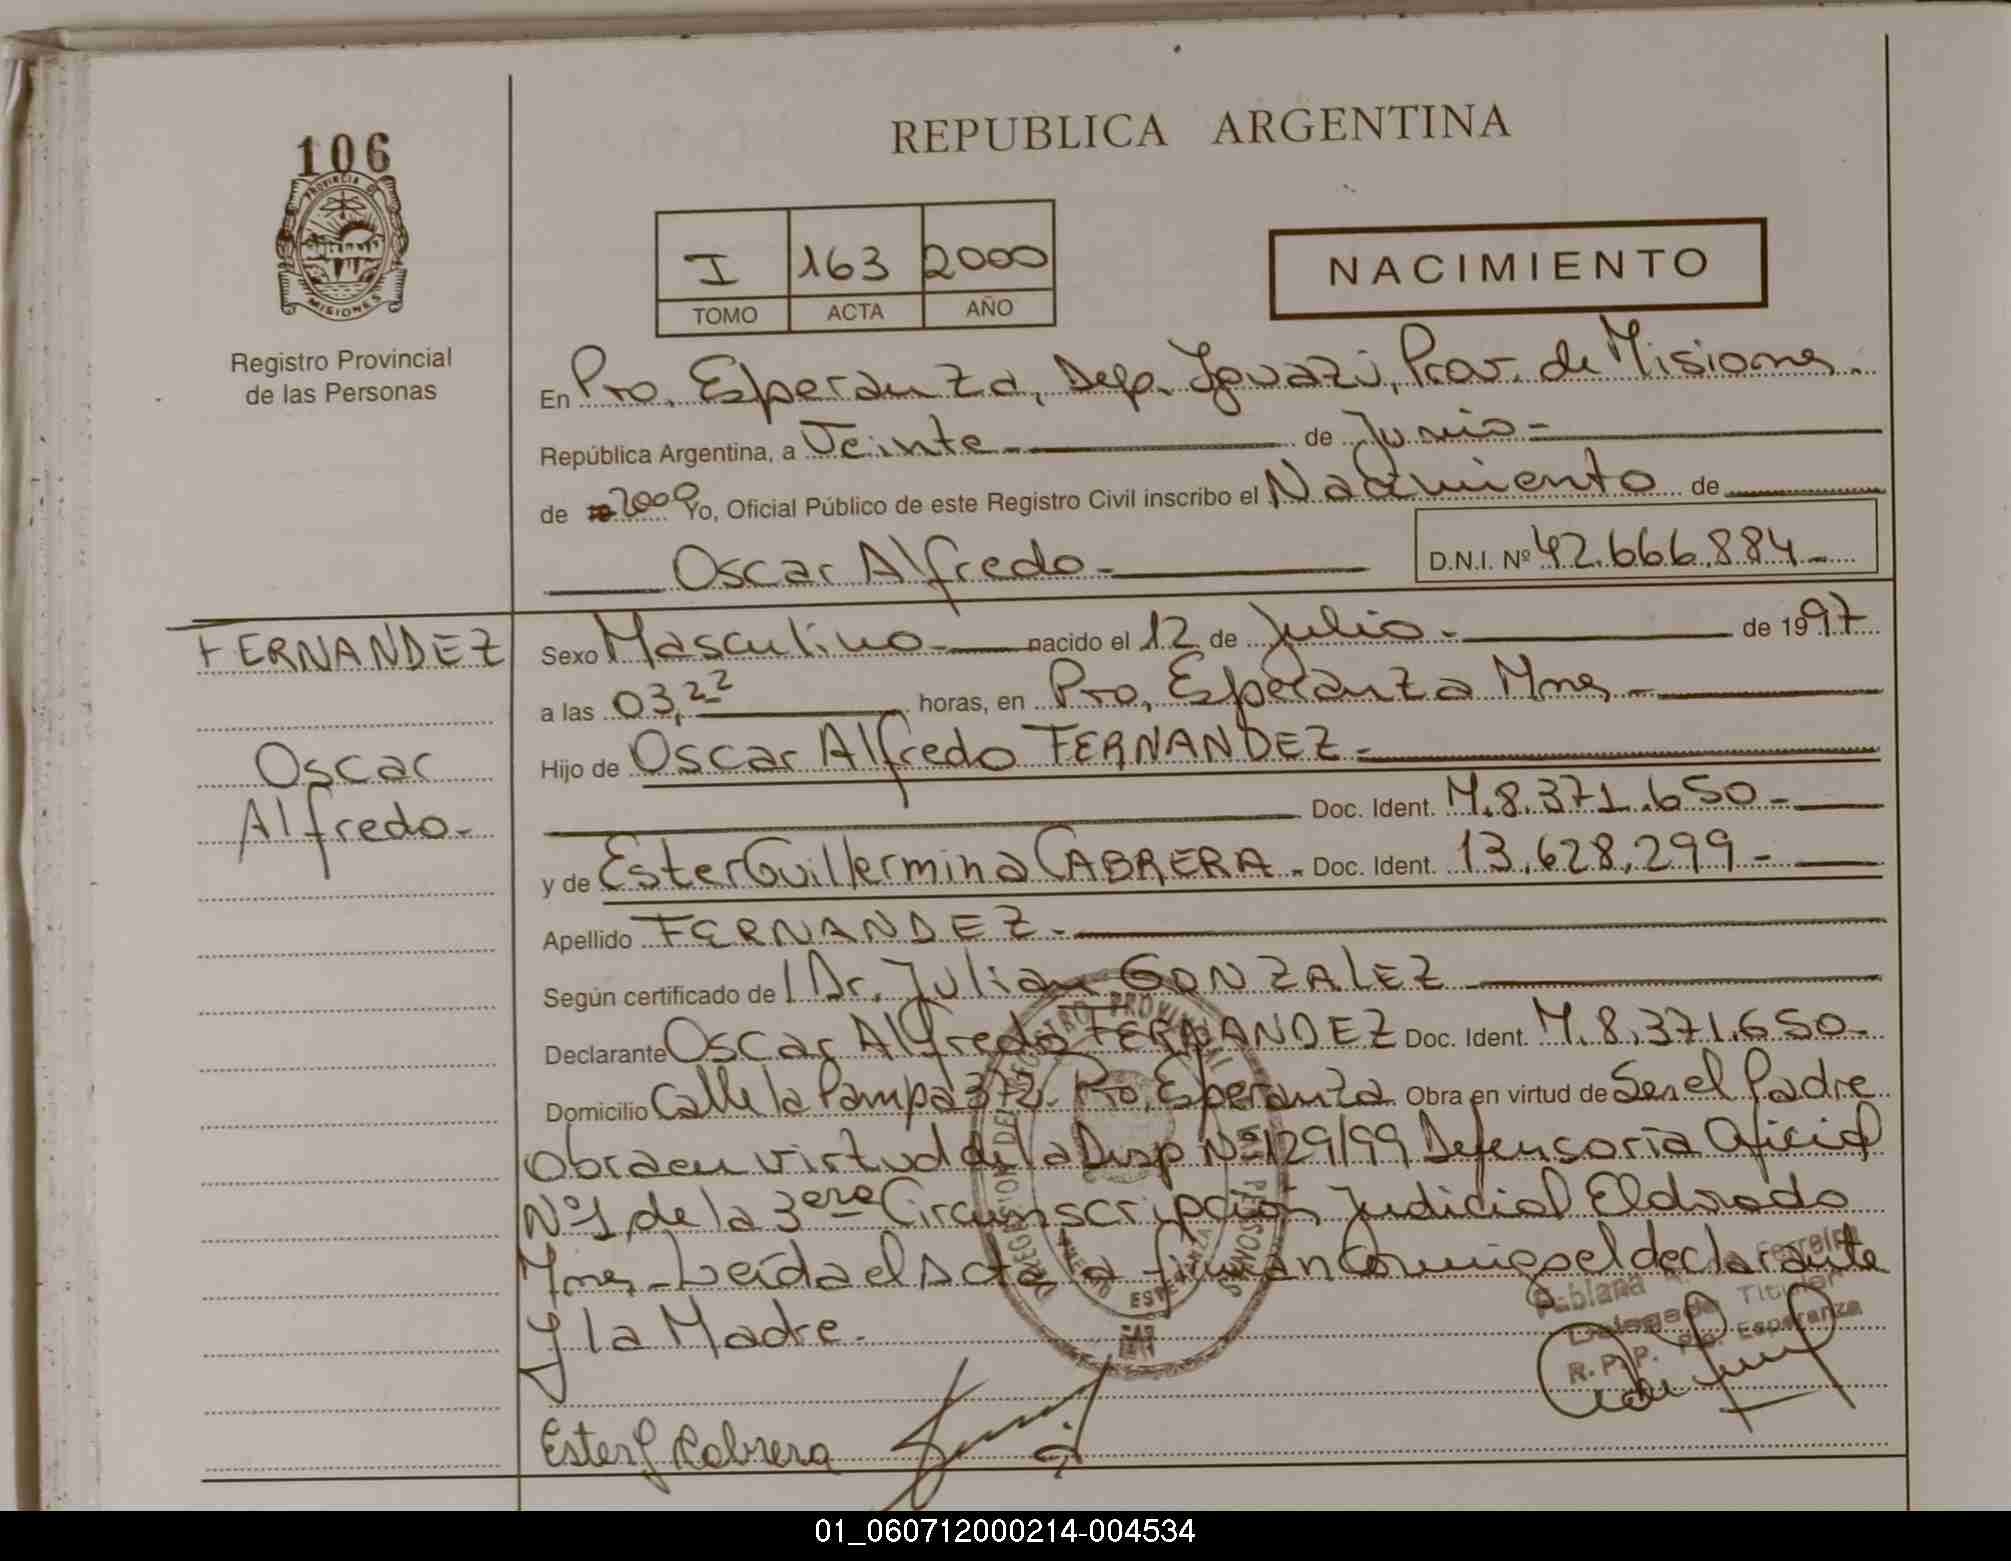 106
PROVINCIA DE
MISIONES
Registro Provincial
de las Personas
REPUBLICA ARGENTINA
I 163 2000
TOMO ACTA AÑO
NACIMIENTO
En Pto. Esperanza, Dep. Iguazú, Prov. de Misiones.
República Argentina, a Veinte - de Junio -
de 2000 Yo, Oficial Público de este Registro Civil inscribo el Nacimiento de
Oscar Alfredo - D.N.I. Nº 42.666.884 -
FERNANDEZ
Oscar
Alfredo -
Sexo Masculino - nacido el 12 de Julio - de 1997
a las 03,22 horas, en Pto. Esperanza Mnes -
Hijo de Oscar Alfredo FERNANDEZ -
Doc. Ident. M.8.371.650 -
y de Ester Guillermina CABRERA - Doc. Ident. 13.628.299 -
Apellido FERNANDEZ -
Según certificado de Dr. Julian GONZALEZ
Declarante Oscar Alfredo FERNANDEZ Doc. Ident. M.8.371.650 -
Domicilio Calle la Pampa 372 - Pto. Esperanza Obra en virtud de Ser el Padre
Obra en virtud de la Disp Nº 129/99 Defensoria Oficial
Nº1 de la 3era Circunscripción Judicial Eldorado
Mnes - Leída el Acta la firman Conmigo el declarante
y la Madre -
Titular
R. P. P. Pto. Esperanza
Ester G Cabrera
01_060712000214-004534